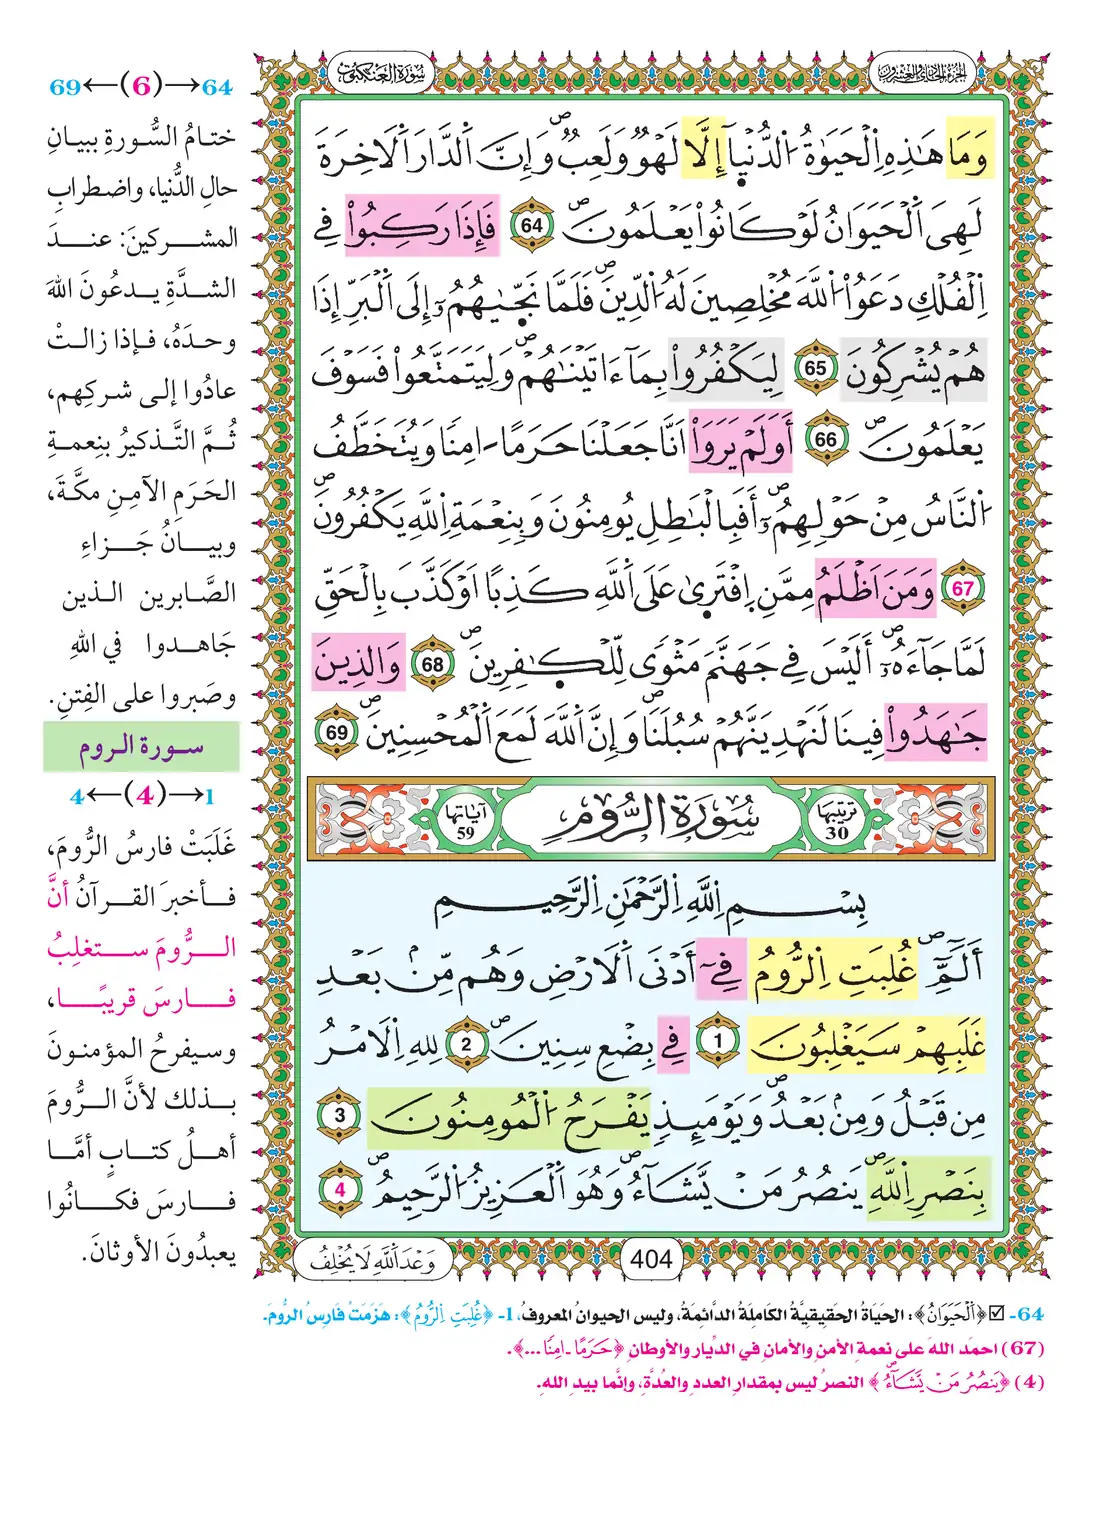 الجزء الحادي والعشرون
سُورَةُ العَنكَبُوت
وَمَا هَٰذِهِ اِ۬لْحَيَوٰةُ اُ۬لدُّنْيَآ إِلَّا لَهْوٌ وَلَعِبٌ وَإِنَّ اَ۬لدَّارَ اَ۬لَاخِرَةَ
لَهِيَ اَ۬لْحَيَوَانُ لَوْ كَانُواْ يَعْلَمُونَ 64 فَإِذَا رَكِبُواْ فِے
اِ۬لْفُلْكِ دَعَوُاْ اُ۬للَّهَ مُخْلِصِينَ لَهُ اُ۬لدِّينَ فَلَمَّا نَجّ۪يٰهُمُۥٓ إِلَى اَ۬لْبَرِّ إِذَا
هُمْ يُشْرِكُونَ 65 لِيَكْفُرُواْ بِمَآ ءَاتَيْنَٰهُمْ وَلِيَتَمَتَّعُواْ فَسَوْفَ
يَعْلَمُونَ 66 أَوَلَمْ يَرَوَاْ اَنَّا جَعَلْنَا حَرَماً اٰمِناً وَيُتَخَطَّفُ
اُ۬لنَّاسُ مِنْ حَوْلِهِمُۥٓ أَفَبِالْبَٰطِلِ يُومِنُونَ وَبِنِعْمَةِ اِ۬للَّهِ يَكْفُرُونَ
67 وَمَنَ اَظْلَمُ مِمَّنِ اِ۪فْتَر۪يٰ عَلَى اَ۬للَّهِ كَذِباً اَوْ كَذَّبَ بِالْحَقِّ
لَمَّا جَآءَهُۥٓ أَلَيْسَ فِے جَهَنَّمَ مَثْوًى لِّلْكٰ۪فِرِينَ 68 وَالذِينَ
جَٰهَدُواْ فِينَا لَنَهْدِيَنَّهُمْ سُبُلَنَا وَإِنَّ اَ۬للَّهَ لَمَعَ اَ۬لْمُحْسِنِينَ 69
ترتيبها 30 سُورَةُ الرُّومِ آياتها 59
بِسْمِ اِ۬للَّهِ اِ۬لرَّحْمَٰنِ اِ۬لرَّحِيمِ
أَلَٓمِّٓ غُلِبَتِ اِ۬لرُّومُ فِےٓ أَدْنَى اَ۬لَارْضِ وَهُم مِّنۢ بَعْدِ
غَلَبِهِمْ سَيَغْلِبُونَ 1 فِے بِضْعِ سِنِينَ 2 لِلهِ اِ۬لَامْرُ
مِن قَبْلُ وَمِنۢ بَعْدُ وَيَوْمَئِذٍ يَفْرَحُ اُ۬لْمُومِنُونَ 3
بِنَصْرِ اِ۬للَّهِ يَنصُرُ مَنْ يَّشَآءُ وَهُوَ اَ۬لْعَزِيزُ اُ۬لرَّحِيمُ 4
404
وَعْدَ اَ۬للَّهِ لَا يُخْلِفُ
64→(6)←69
ختامُ السُّورةِ ببيانِ
حالِ الدُّنيا، واضطرابِ
المشركينَ: عندَ
الشدَّةِ يدعُونَ اللهَ
وحدَهُ، فإذا زالتْ
عادُوا إلى شركِهم،
ثُمَّ التَّذكيرُ بنِعمةِ
الحَرَمِ الآمِنِ مكَّةَ،
وبيانُ جَزاءِ
الصَّابرين الذين
جَاهدوا في اللهِ
وصَبروا على الفِتنِ.
سورة الروم
1→(4)←4
غَلَبَتْ فارسُ الرُّومَ،
فأخبرَ القرآنُ أنَّ
الرُّومَ ستغلِبُ
فارسَ قريبًا،
وسيفرحُ المؤمنونَ
بذلك لأنَّ الرُّومَ
أهلُ كتابٍ أمَّا
فارسَ فكانُوا
يعبدُونَ الأوثانَ.
64- ☑ ﴿اَ۬لْحَيَوَانُ﴾: الحَيَاةُ الحَقِيقِيَّةُ الكَامِلَةُ الدَّائِمَةُ، وليس الحيوانُ المعروفُ، 1- ﴿غُلِبَتِ اِ۬لرُّومُ﴾: هَزَمَتْ فَارِسُ الرُّومَ.
(67) احمَد اللهَ على نعمةِ الأمنِ والأمانِ في الدِّيارِ والأوطانِ ﴿حَرَماً اٰمِناً ...﴾.
(4) ﴿يَنصُرُ مَنْ يَّشَآءُ﴾ النصرُ ليس بمقدارِ العددِ والعُدَّةِ، وإنَّما بيدِ اللهِ.